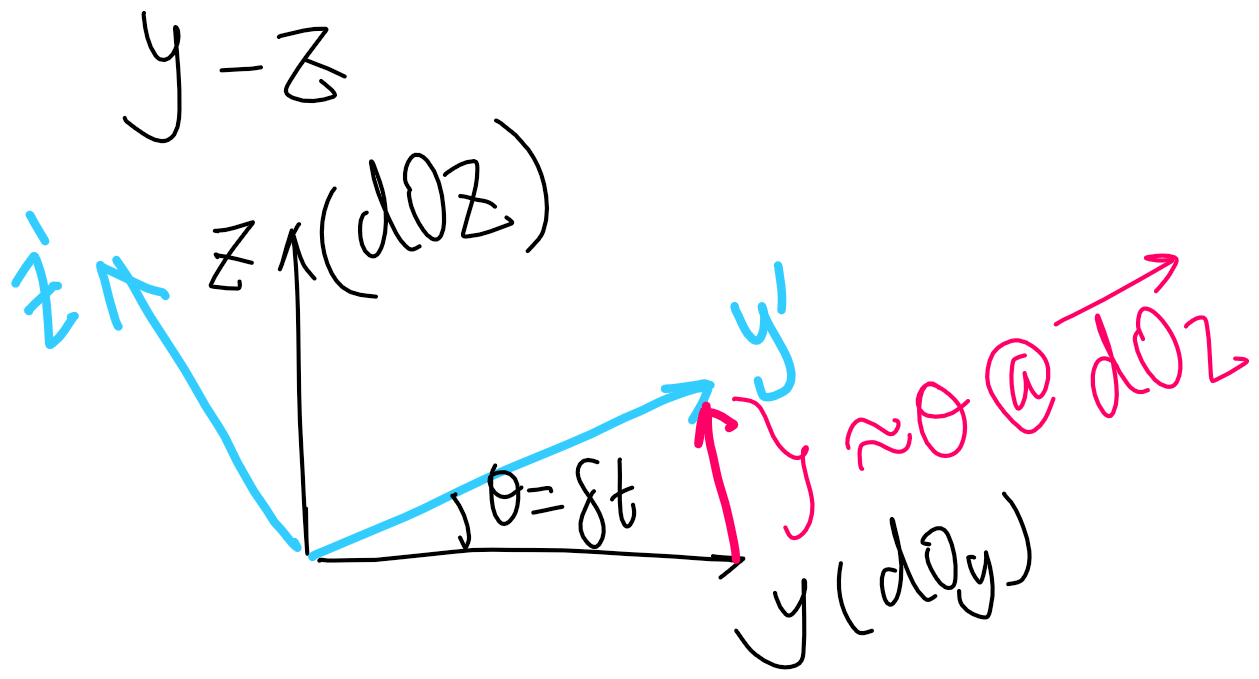 y - z
z (dOz)
z'
y'
≈ θ @ dOz
θ = δt
y (dOy)